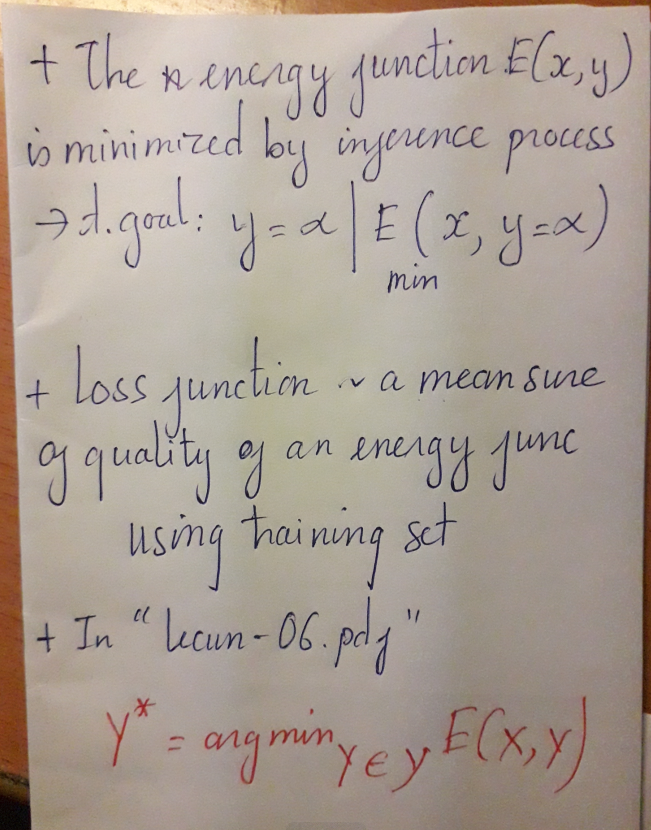 + The energy function E(x,y)
is minimized by inference process
→ d.goal: y = α | E (x, y=α)
min
+ Loss function ~ a meansure
of quality of an energy func
using training set
+ In “lecun-06.pdf”
Y* = argmin Y∈y E(X,Y)